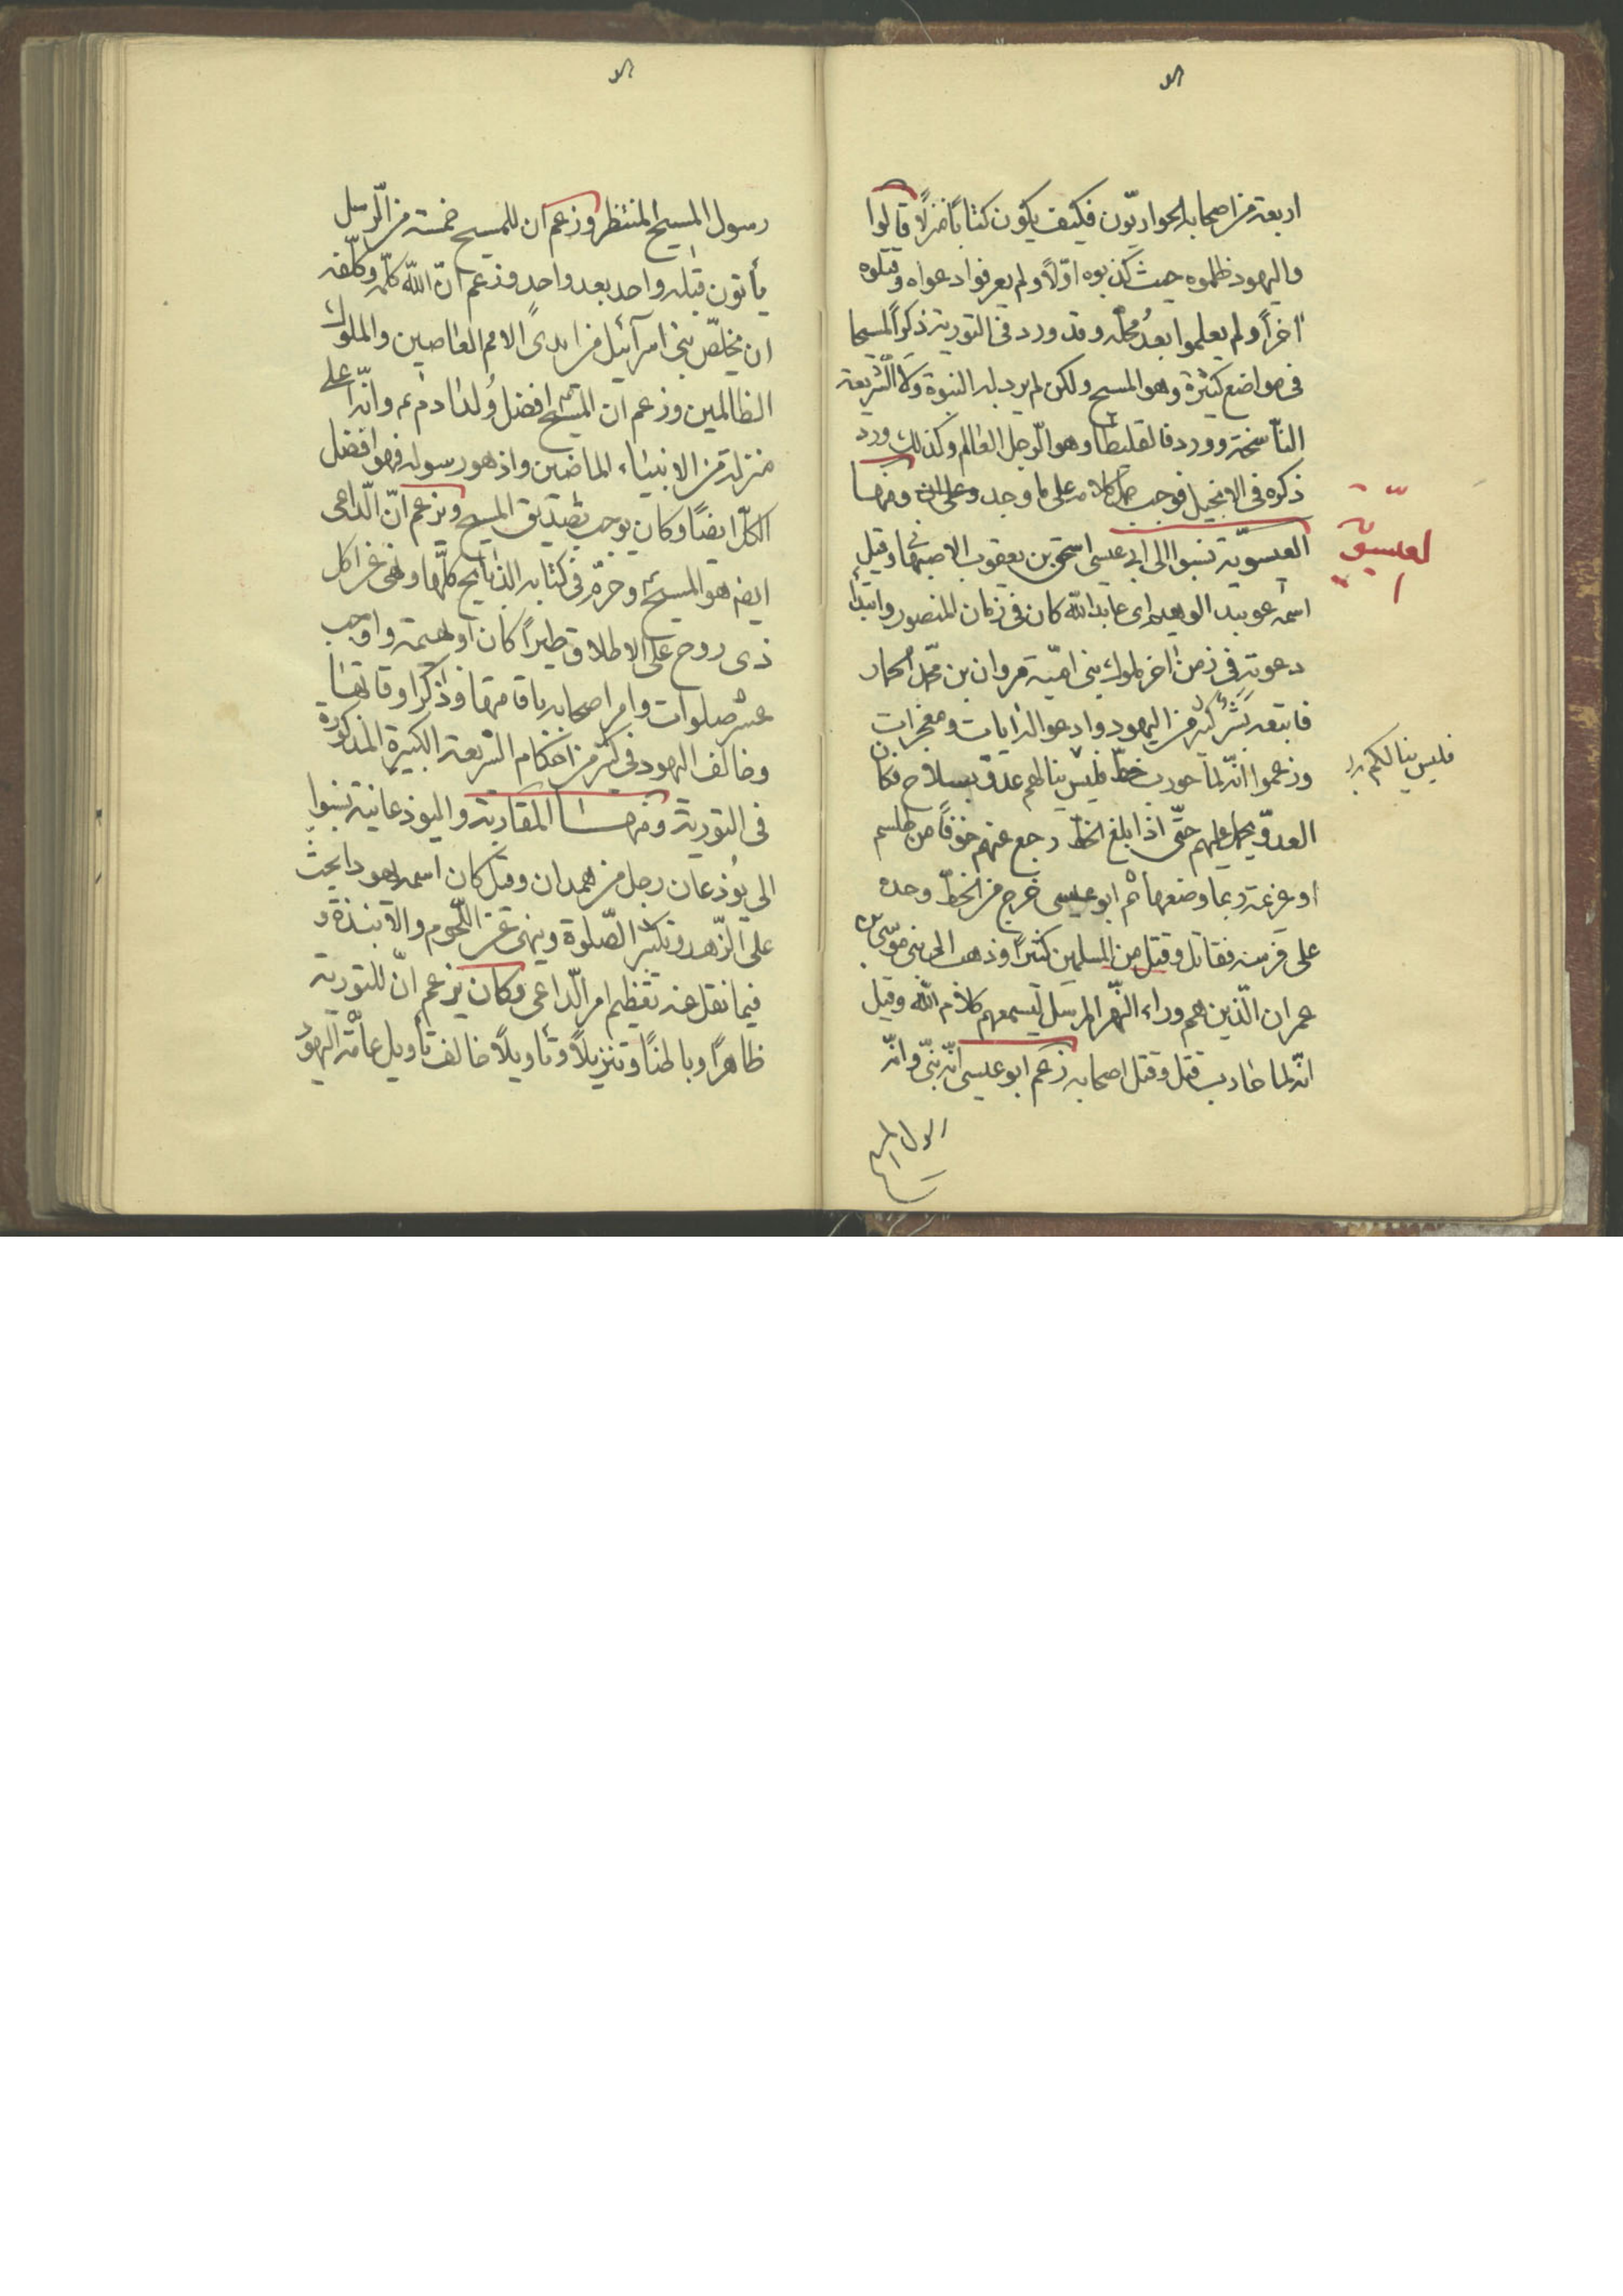 اربعة من اصحابه الحواريّون فكيف يكون كتابًا منزلًا قالوا
واليهود ظلموه حيث كذبوه اوّلًا ولم يعرفوا دعواه وقتلوه
اخرًا ولم يعلموا بعدُ محلّه وقد ورد في التورية ذكر المسيحا
في مواضع كثيرة وهو المسيح ولكن لم يرد له النبوة ولا الشريعة
الناسخة وورد فارقليطا وهو الرجل العالم وكذلك ورد
ذكره في الانجيل فوجب حمله على ما وجد ومنها
العيسويّة
العيسويّة نسبوا الى ابي عيسى اسحق بن يعقوب الاصبهاني وقيل
اسمه عوبيد الوهيم اي عابد الله كان في زمان المنصور وابتدأ
دعوته في زمن اخر ملوك بني اميّة مروان بن محمّد الحمار
فاتبعه بَشَرٌ كثير من اليهود وادعوا له ايات ومعجزات
وزعموا انّه لما حورب خطّ فليس ينالهم عدوّ بسلاح فكان
فليس ينالكم
العدوّ يحمل عليهم حتّى اذا بلغ الخطّ رجع عنهم خوفًا من طلسم
او عزيمة ربما وضعها ثم ابو عيسى خرج من الخطّ وحده
على فرسه فقاتل وقتل من المسلمين كثيرًا وذهب الى بني موسى بن
عمران الّذين هم وراء النّهر المرسل ليسمعهم كلام الله وقيل
انّه لما حارب قتل وقتل اصحابه زعم ابو عيسى انّه نبيّ وانّه
رسول المسيح
رسول المسيح المنتظر وزعم ان للمسيح خمسة من الرّسل
يأتون قبله واحد بعد واحد وزعم انّ الله كلّمه وكلّفه
ان يخلّص بني اسرآئيل من ايدي الامم العاصين والملوك
الظالمين وزعم ان المسيح افضل وُلد ادم ع م وانّه اعلى
منزلة من الانبياء الماضين واذ هو رسوله فهو افضل
الكلّ ايضًا وكان يوجب تصديق المسيح ويزعم انّ الدّاعي
ايضا هو المسيح وحرّم في كتابه الذبايح كلّها ونهى عن اكل
ذي روح على الاطلاق طيرًا كان او بهيمة واوجب
عشر صلوات وامر اصحابه باقامتها وذكر اوقاتها
وخالف اليهود في كثير من احكام الشريعة الكبيرة المذكورة
في التورية ومنها المقاربة واليوذعانية نسبوا
الى يُوذعان رجل من همدان وقيل كان اسمه يهودا يحثّ
على الزّهد وتكثير الصّلوة وينهى عن اللّحوم والانبذة و
فيما نقل عنه تعظيم امر الدّاعي وكان يزعم انّ للتورية
ظاهرًا وباطنًا وتنزيلًا وتأويلًا خالف تأويل عامّة اليهود